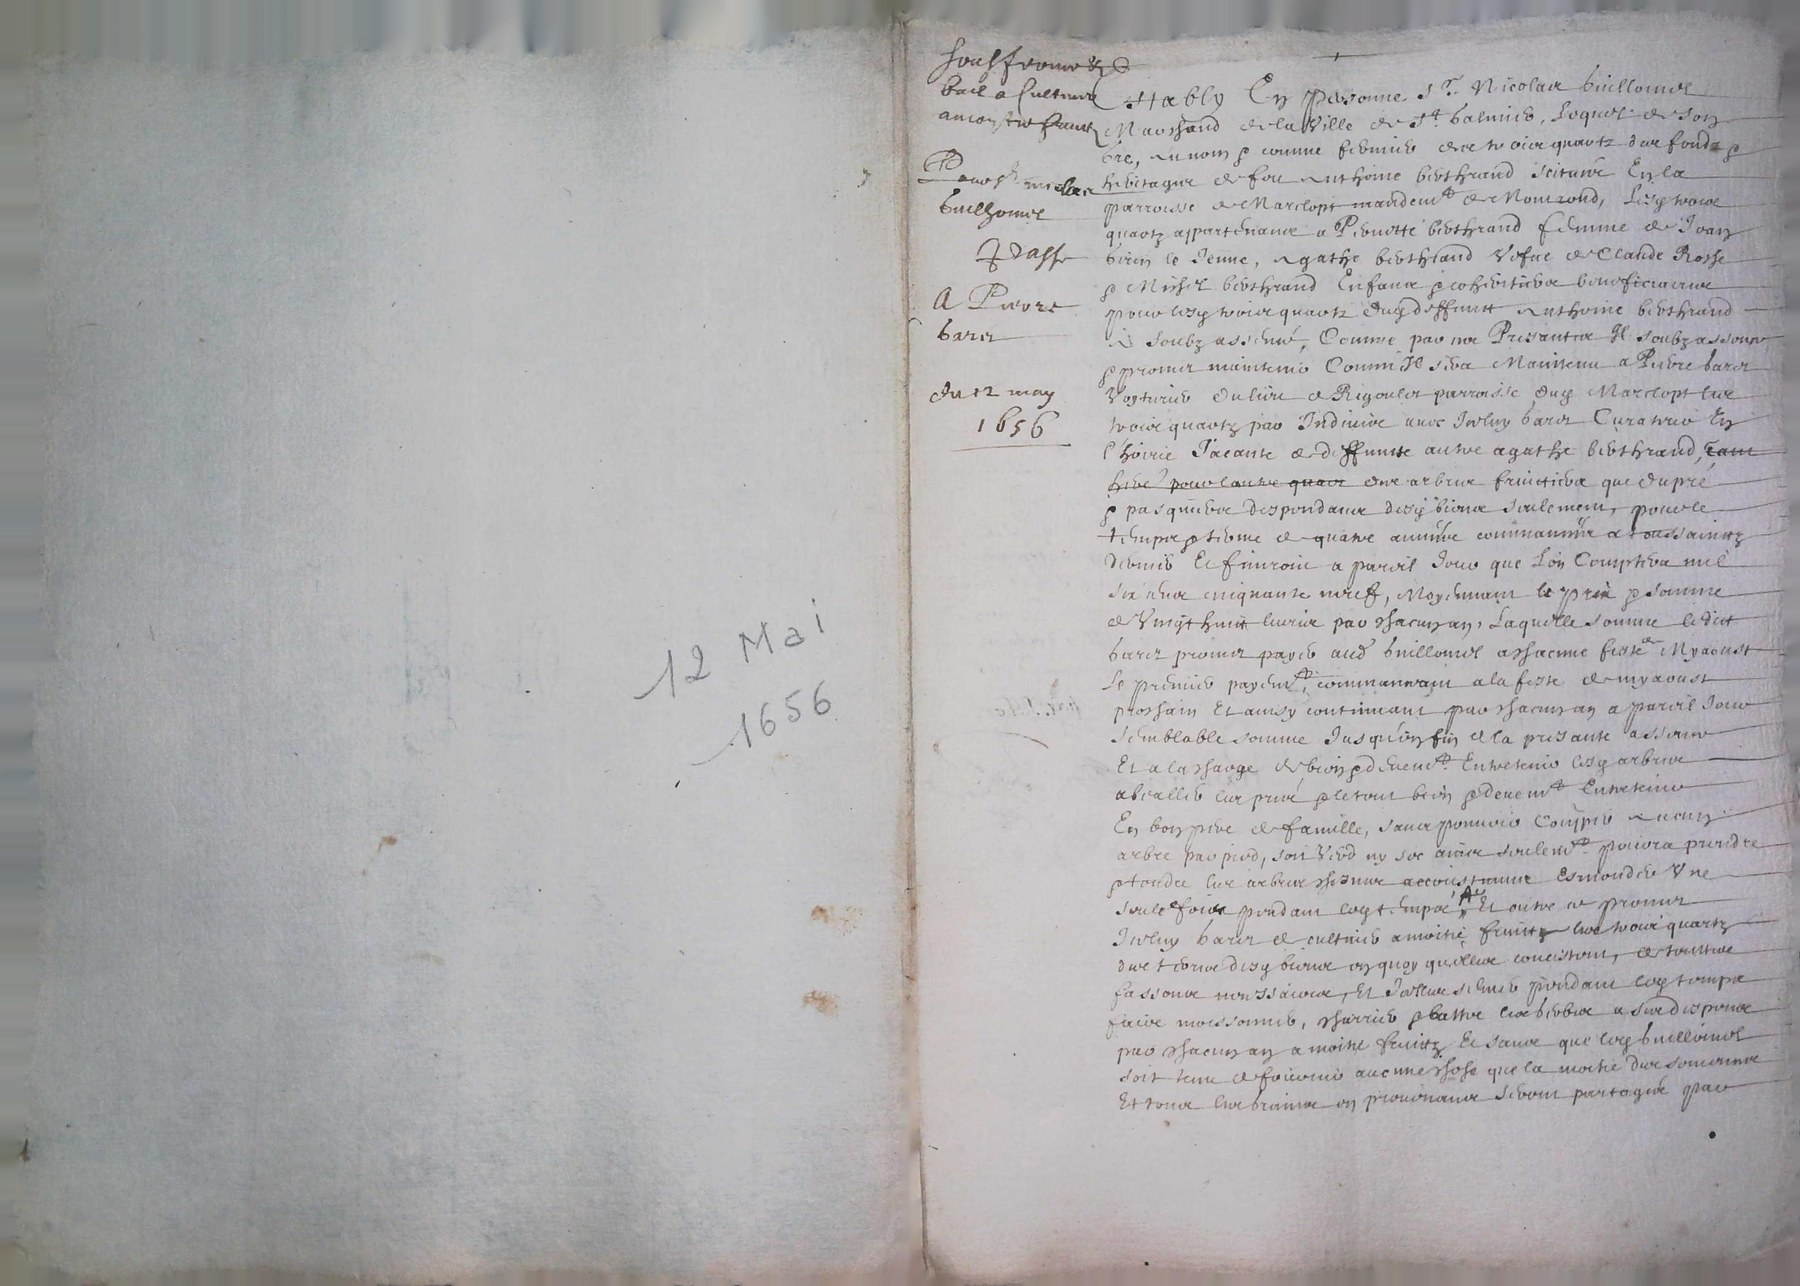 12 Mai
1656
bail a culture
a moytie fruictz
Nicolas
Guilhomot
&
passé
A Pierre
Baret
du 12 may
1656
Estably En personne Sr. Nicolas Guillomot
Marchand de la Ville de St. Galmier, Lequel de son
gré, au nom & comme fermier des trois quartz des fondz &
heritages de feu Anthoine Berthrand scitués En la
parroisse de Marclopt mandemt de Montrond, Lesqz trois
quartz appartenans a Pierrette Berthrand femme de Jean
le Jeune, Agathe Berthrand Vefve de Claude Rosse
& Michel Berthrand Enfans & coheritiers beneficiaires
pour lesqz trois quartz dudq deffunt Anthoine Berthrand
A Soubz assencé, Comme par ces Presantes Il soubz assence
& promet maintenir Comm' Il sera Maintenu a Pierre Baret
Voyturier du lieu de Rigoulet parroisse dudq Marclopt les
trois quartz par Indivis avec Icelluy Baret Curateur En
l'hoirie Jacante de deffuncte autre agathe Berthrand,
des arbres fruictiers que du pré
& pasquiers despendans desqz biens seulement, pour le
temps & terme de quatre années commancées a toussainctz
dernier Et finiront a pareil Jour que L'on Comptera mil
six cens cinquante neuf, Moyennant le prix & somme
de Vingt huict livres par chacun an, Laquelle somme ledict
Baret promet payer aud Guillomot a chacune feste de Myaoust
Le premier payemt, commancant a la feste de myaoust
prochain Et ainsy continuant par chacun an a pareil Jour
semblable somme Jusqu'en fin de la presante assence
Et a la charge de bien & deuemt. Entretenir lesq arbres
abealler les prés & le tout bien & deuemt Entretenir
En bon pere de famille, sans pouvoir coupper aucun
arbre par pied, soit Verd ny sec ains seulemt pourra prendre
& tondre les arbres chesnes accoustumés Esmonder Une
seule fois pendant leq temps, Et outre ce promet
Icelluy Baret de cultiver a moitié fruictz les trois quartz
des terres desq biens en quoy qu'elles concistent, de touttes
fassons necessaires, Et Icelles semer pendant leq temps
faire moissonner, charrier & battre les bledz a ses despens
par chacun an a moitié fruictz Et sans que leq Guillomot
soit tenu de fournir aucune chose que la moitié des semences
Et tous les grains en provenans seront partagés par